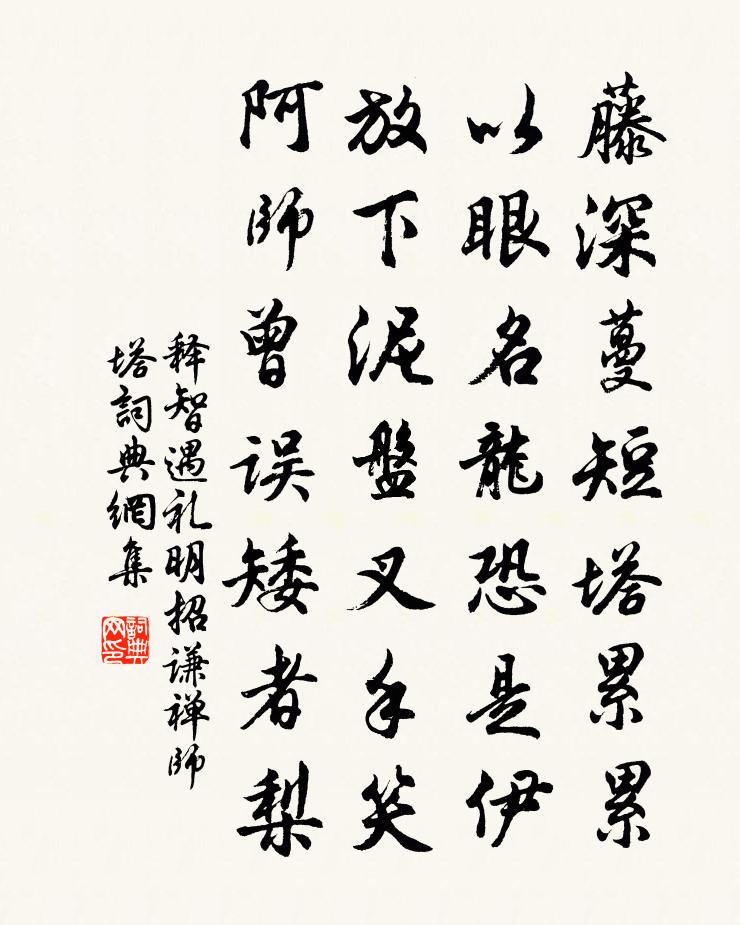 藤深蔓短塔累累
以眼名龍恐是伊
放下泥盤叉手笑
阿師曾误矮者梨
释智遇礼明招谦禅师
塔詞典網集
詞典
网印